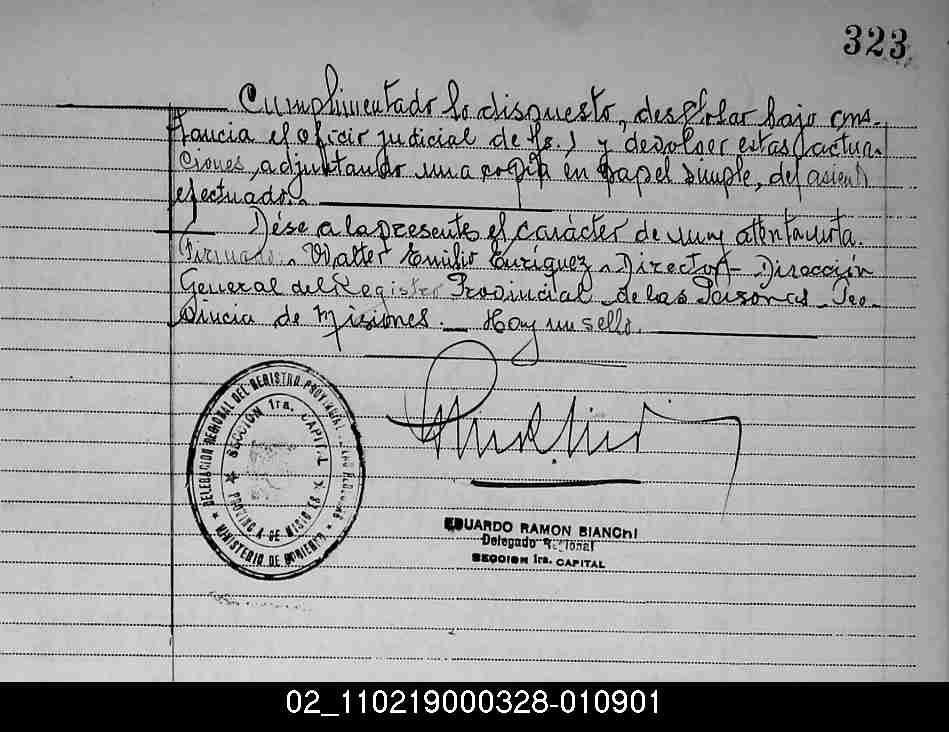 323
Cumplimentado lo dispuesto, desglosar bajo cons-
tancia el oficio judicial de fs. 1 y devolver estas actua-
ciones, adjuntando una copia en papel simple, del asiento
efectuado.
Dése a la presente el carácter de muy atenta nota.
Firmado. Walter Emilio Enriquez - Director - Dirección
General del Registro Provincial de las Personas - Pro-
vincia de Misiones. - Hay un sello.
DELEGACION REGIONAL DEL REGISTRO PROVINCIAL DE LAS PERSONAS
SECCION 1ra. CAPITAL
PROVINCIA DE MISIONES
MINISTERIO DE GOBIERNO
EDUARDO RAMON BIANCHI
Delegado Regional
SECCION 1ra. CAPITAL
02_110219000328-010901